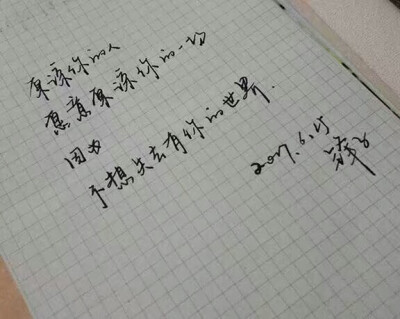 原谅你的人
愿意原谅你的一切
因为
不想失去有你的世界.
2017.6.15